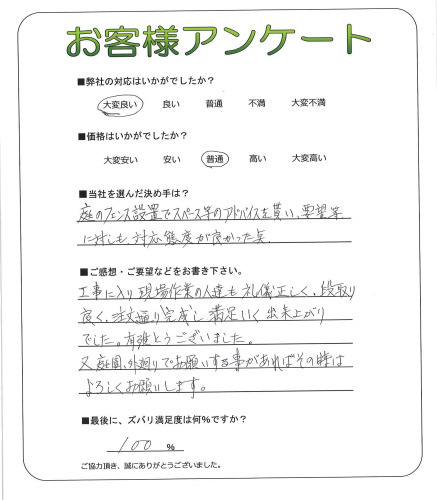 お客様アンケート
■弊社の対応はいかがでしたか？
大変良い 良い 普通 不満 大変不満
■価格はいかがでしたか？
大変安い 安い 普通 高い 大変高い
■当社を選んだ決め手は？
庭のフェンス設置でスペース等のアドバイスを貰い、要望等
に対しも対応態度が良かった点。
■ご感想・ご要望などをお書き下さい。
工事に入り現場作業の人達も礼儀正しく、段取り
良く、注文通り完成し満足いく出来上がり
でした。有難とうございました。
又、庭園、外廻りでお願いする事があればその時は
よろしくお願いします。
■最後に、ズバリ満足度は何％ですか？
100 %
ご協力頂き、誠にありがとうございました。